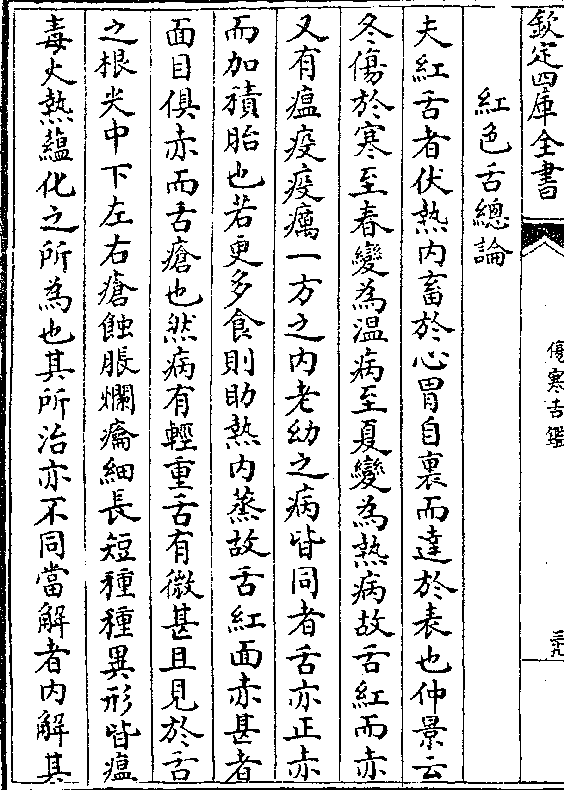 欽定四庫全書
傷寒舌鑑
三九
紅色舌總論
夫紅舌者伏熱内畜於心胃自裏而達於表也仲景云
冬傷於寒至春變為温病至夏變為熱病故舌紅而赤
又有瘟疫疫癘一方之内老幼之病皆同者舌亦正赤
而加積胎也若更多食則助熱内蒸故舌紅面赤甚者
面目俱赤而舌瘡也然病有輕重舌有微甚且見於舌
之根尖中下左右瘡蝕脹爛瘺細長短種種異形皆瘟
毒火熱蘊化之所為也其所治亦不同當解者内解其